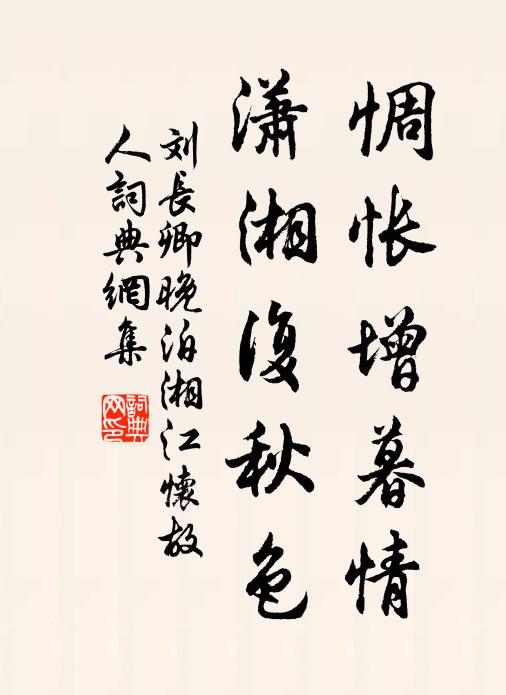 惆怅增暮情
潇湘复秋色
刘长卿晚泊湘江懷故
人詞典網集
詞典
网印